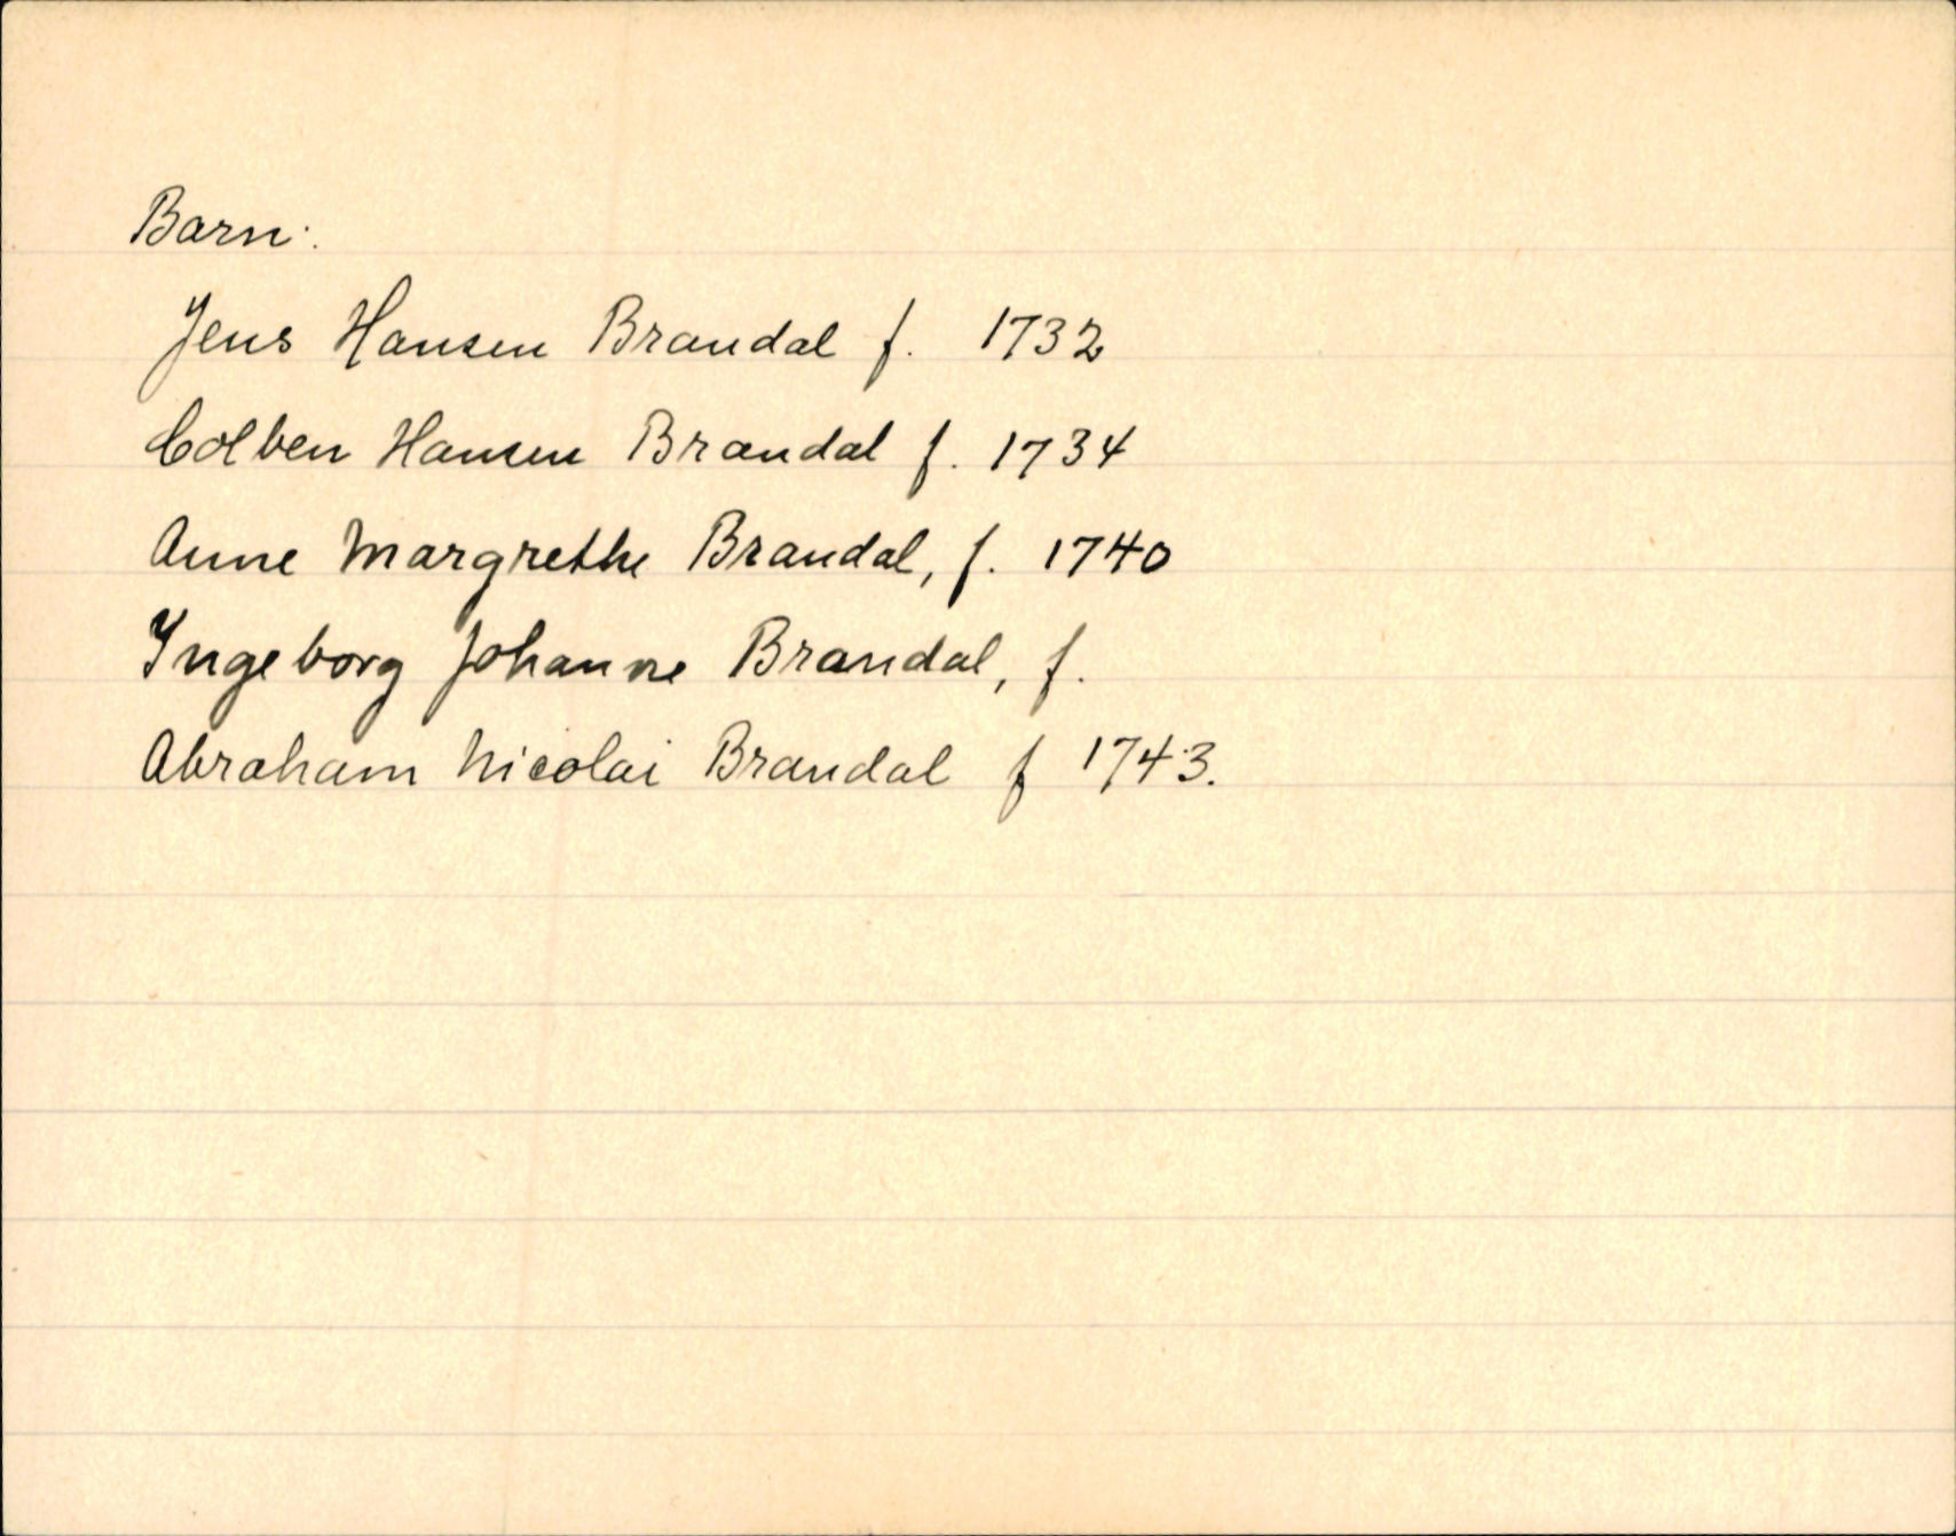 Barn:
Jens Hansen Brandal f. 1732
Colben Hansen Brandal f. 1734
Anne Margrethe Brandal, f. 1740
Ingeborg Johanne Brandal, f.
Abraham Nicolai Brandal f 1743.